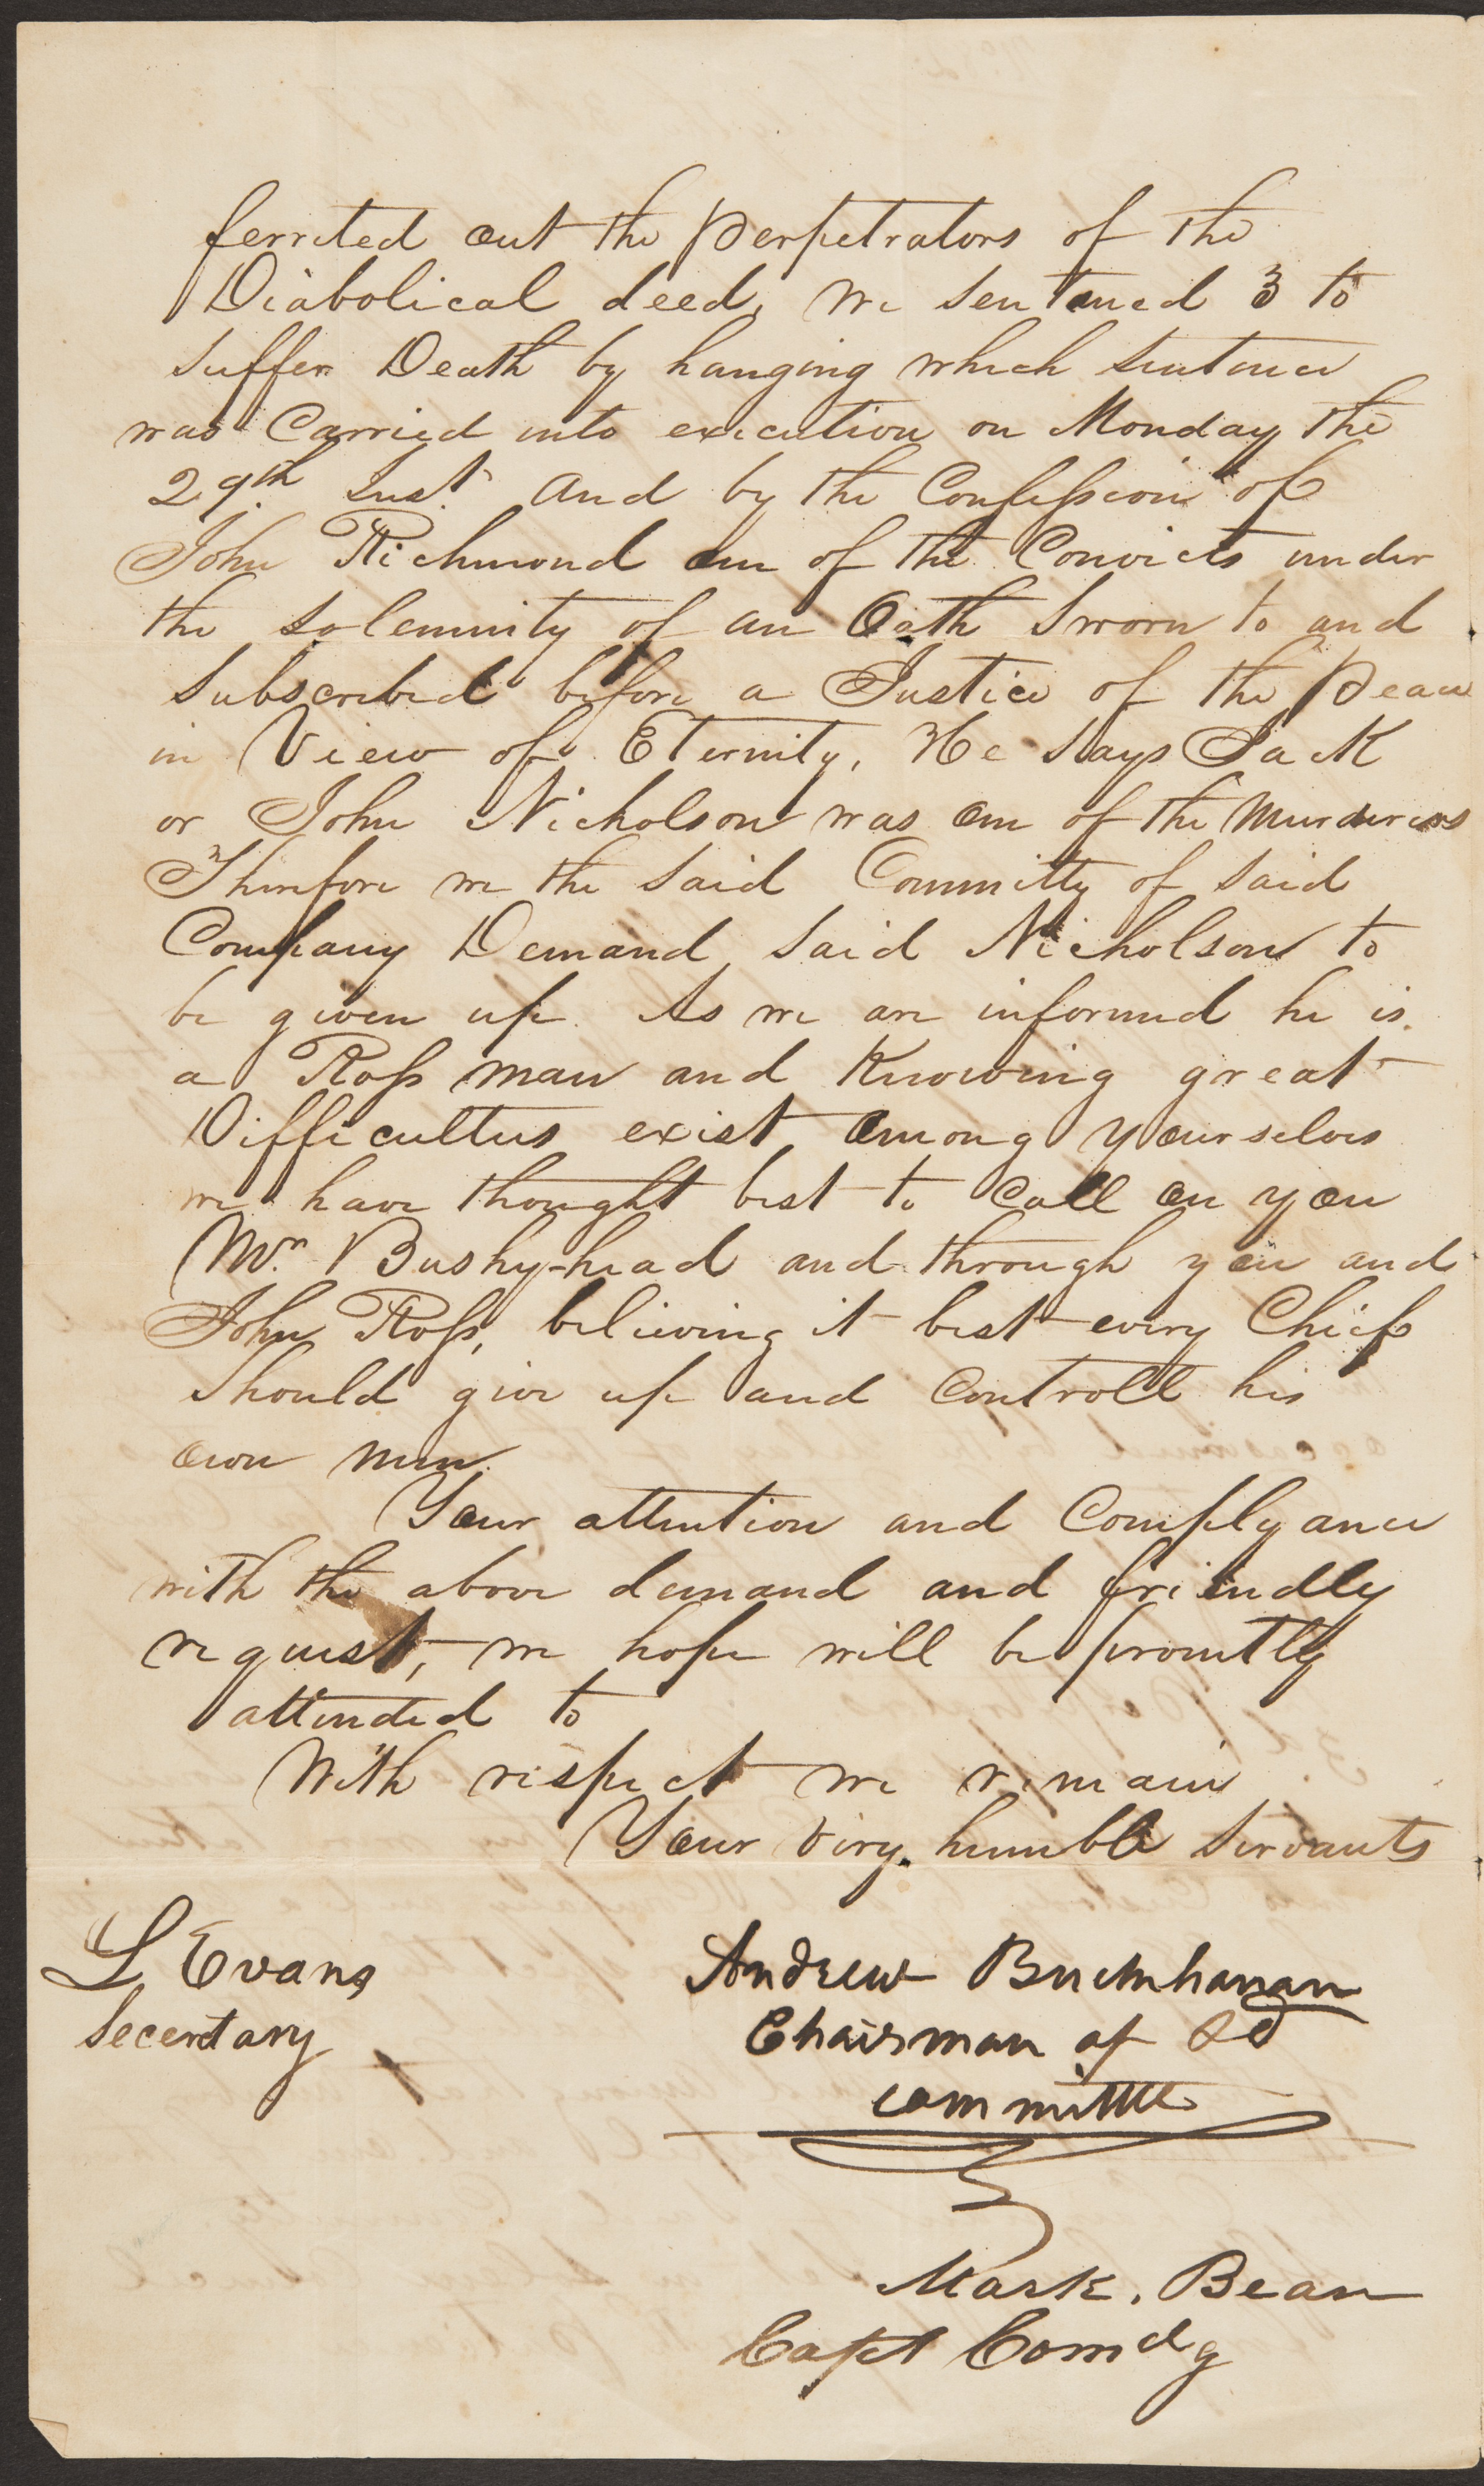 ferrited out the Perpetrators of the
Diabolical deed, we sentenced 3 to
suffer Death by hanging which sentence
was Carried into execution on Monday the
29th Inst. And by the Confession of
John Richmond one of the Convicts under
the solemnity of an Oath Sworn to and
Subscribed before a Justice of the Peace
in View of Eternity, He Says Jack
or John Nicholson was one of the Murderers
Therefore we the said Committy of said
Company Demand said Nicholson to
be given up. As we are informed he is
a Ross man and Knowing great
Difficultys exist among yourselves
we have thought best to Call on you
Mr. Bushy-head and through you and
John Ross, believing it best every Chief
Should give up and Controll his
own men.
Your attention and Complyance
with the above demand and friendly
request, we hope will be promtly
attended to
With respect we remain
Your very humble Servants
L Evans
Secerntary
Andrew Buchhanan
Chairman of Sd
committee
Mark. Bean
Capt Comdg